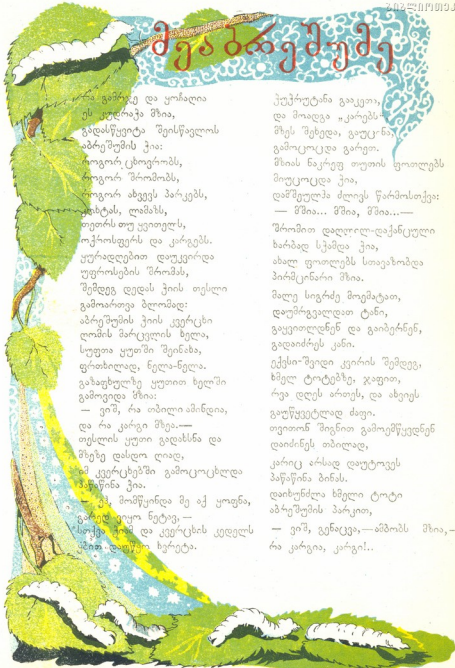 მეაბრეშუმე
რა გამრჯე და ყოჩაღია
ეს კუდრაჭა მზია,
გადასწყვიტა შეისწავლოს
აბრეშუმის ჭია:
როგორ ცხოვრობს,
როგორ შრომობს,
როგორ ახვევს პარკებს,
კოხტას, ლამაზს,
თეთრს თუ ყვითელს,
ოქროსფერს და კარგებს.
ყურადღებით დაუკვირდა
უფროსების შრომას,
შემდეგ დედას ჭიის თესლი
გამოართვა ბლომად:
აბრეშუმის ჭიის კვერცხი
ღომის მარცვლის ხელა,
სუფთა ყუთში შეინახა,
ფრთხილად, ნელა-ნელა.
გაზაფხულზე ყუთით ხელში
გამოვიდა მზია:
— ვიშ, რა თბილი ამინდია,
და რა კარგი მზეა.—
თესლის ყუთი გადახსნა და
მზეზე დასდო ღიად,
იმ კვერცხებში გამოცოცხლდა
პაწაწინა ჭია.
— უჰ, მომწყინდა მე აქ ყოფნა,
გარედ ვიყო ნეტავ, —
სთქვა ჭიამ და კვერცხის კედელს
პირით დაუწყო ხვრეტა.
ჭუჭრუტანა გააკეთა,
და მოადგა „კარებს“
მზეს შეხედა, გაუცინა,
გამოცოცდა გარეთ.
მზიას ნაკრეფ თუთის ფოთლებს
მიუცოცდა ჭია,
დამშეულმა ძლივს წარმოსთქვა:
— მშია... მშია, მშია...—
შრომით დაღლილ-დაქანცული
ხარბად სჭამდა ჭია,
ახალ ფოთლებს სთავაზობდა
პირმცინარი მზია.
მალე სიგრძე მოემატათ,
დაუმრგვალდათ ტანი,
გაყვითლდნენ და გაიბერნენ,
გადაიძრეს კანი.
ექვსი-შვიდი კვირის შემდეგ,
ხმელ ტოტებზე, ჯაფით,
რვა დღეს ართეს, და ახვიეს
გაუწყვეტლად ძაფი.
თვითონ შიგნით გამოემწყვდნენ
დაიძინეს თბილად,
კარიც არსად დაუტოვეს
პაწაწინა ბინას.
დაიხუნძლა ხმელი ტოტი
აბრეშუმის პარკით,
— ვიშ, გენაცვა,—ამბობს მზია,—
რა კარგია, კარგი!..